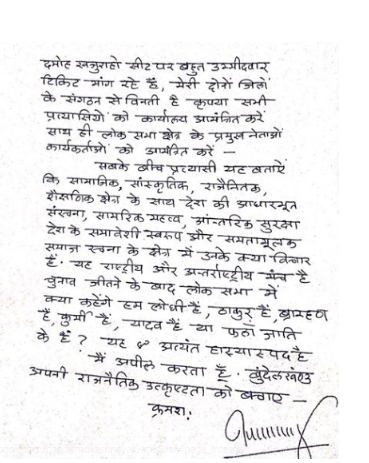 दमोह खजुराहो सीट पर बहुत उम्मीदवार
टिकिट मांग रहे हैं, मेरी दोनों जिलों
के संगठन से विनती है कृपया सभी
प्रत्याशियों को कार्यालय आमंत्रित करें
साथ ही लोक सभा क्षेत्र के प्रमुख नेताओं
कार्यकर्ताओं को आमंत्रित करें —
सबके बीच प्रत्याशी यह बताऐं
कि सामाजिक, सांस्कृतिक, राजनैतिक,
शैक्षणिक क्षेत्र के साथ देश की आधारभूत
संरचना, सामरिक महत्व, आंन्तरिक सुरक्षा
देश के समावेशी स्वरूप और समतामूलक
समाज रचना के क्षेत्र में उनके क्या विचार
हैं. यह राष्ट्रीय और अन्तर्राष्ट्रीय मंच है
चुनाव जीतने के बाद लोक सभा में
क्या कहेंगे हम लोधी हैं, ठाकुर हैं, ब्राम्हण
हैं, कुर्मी हैं, यादव हैं या फलाँ जाति
के हैं? यह अत्यंत हास्यास्पद है
मैं अपील करता हूँ. बुंदेलखण्ड
अपनी राजनैतिक उत्कृष्टता को बचाए —
क्रमश: